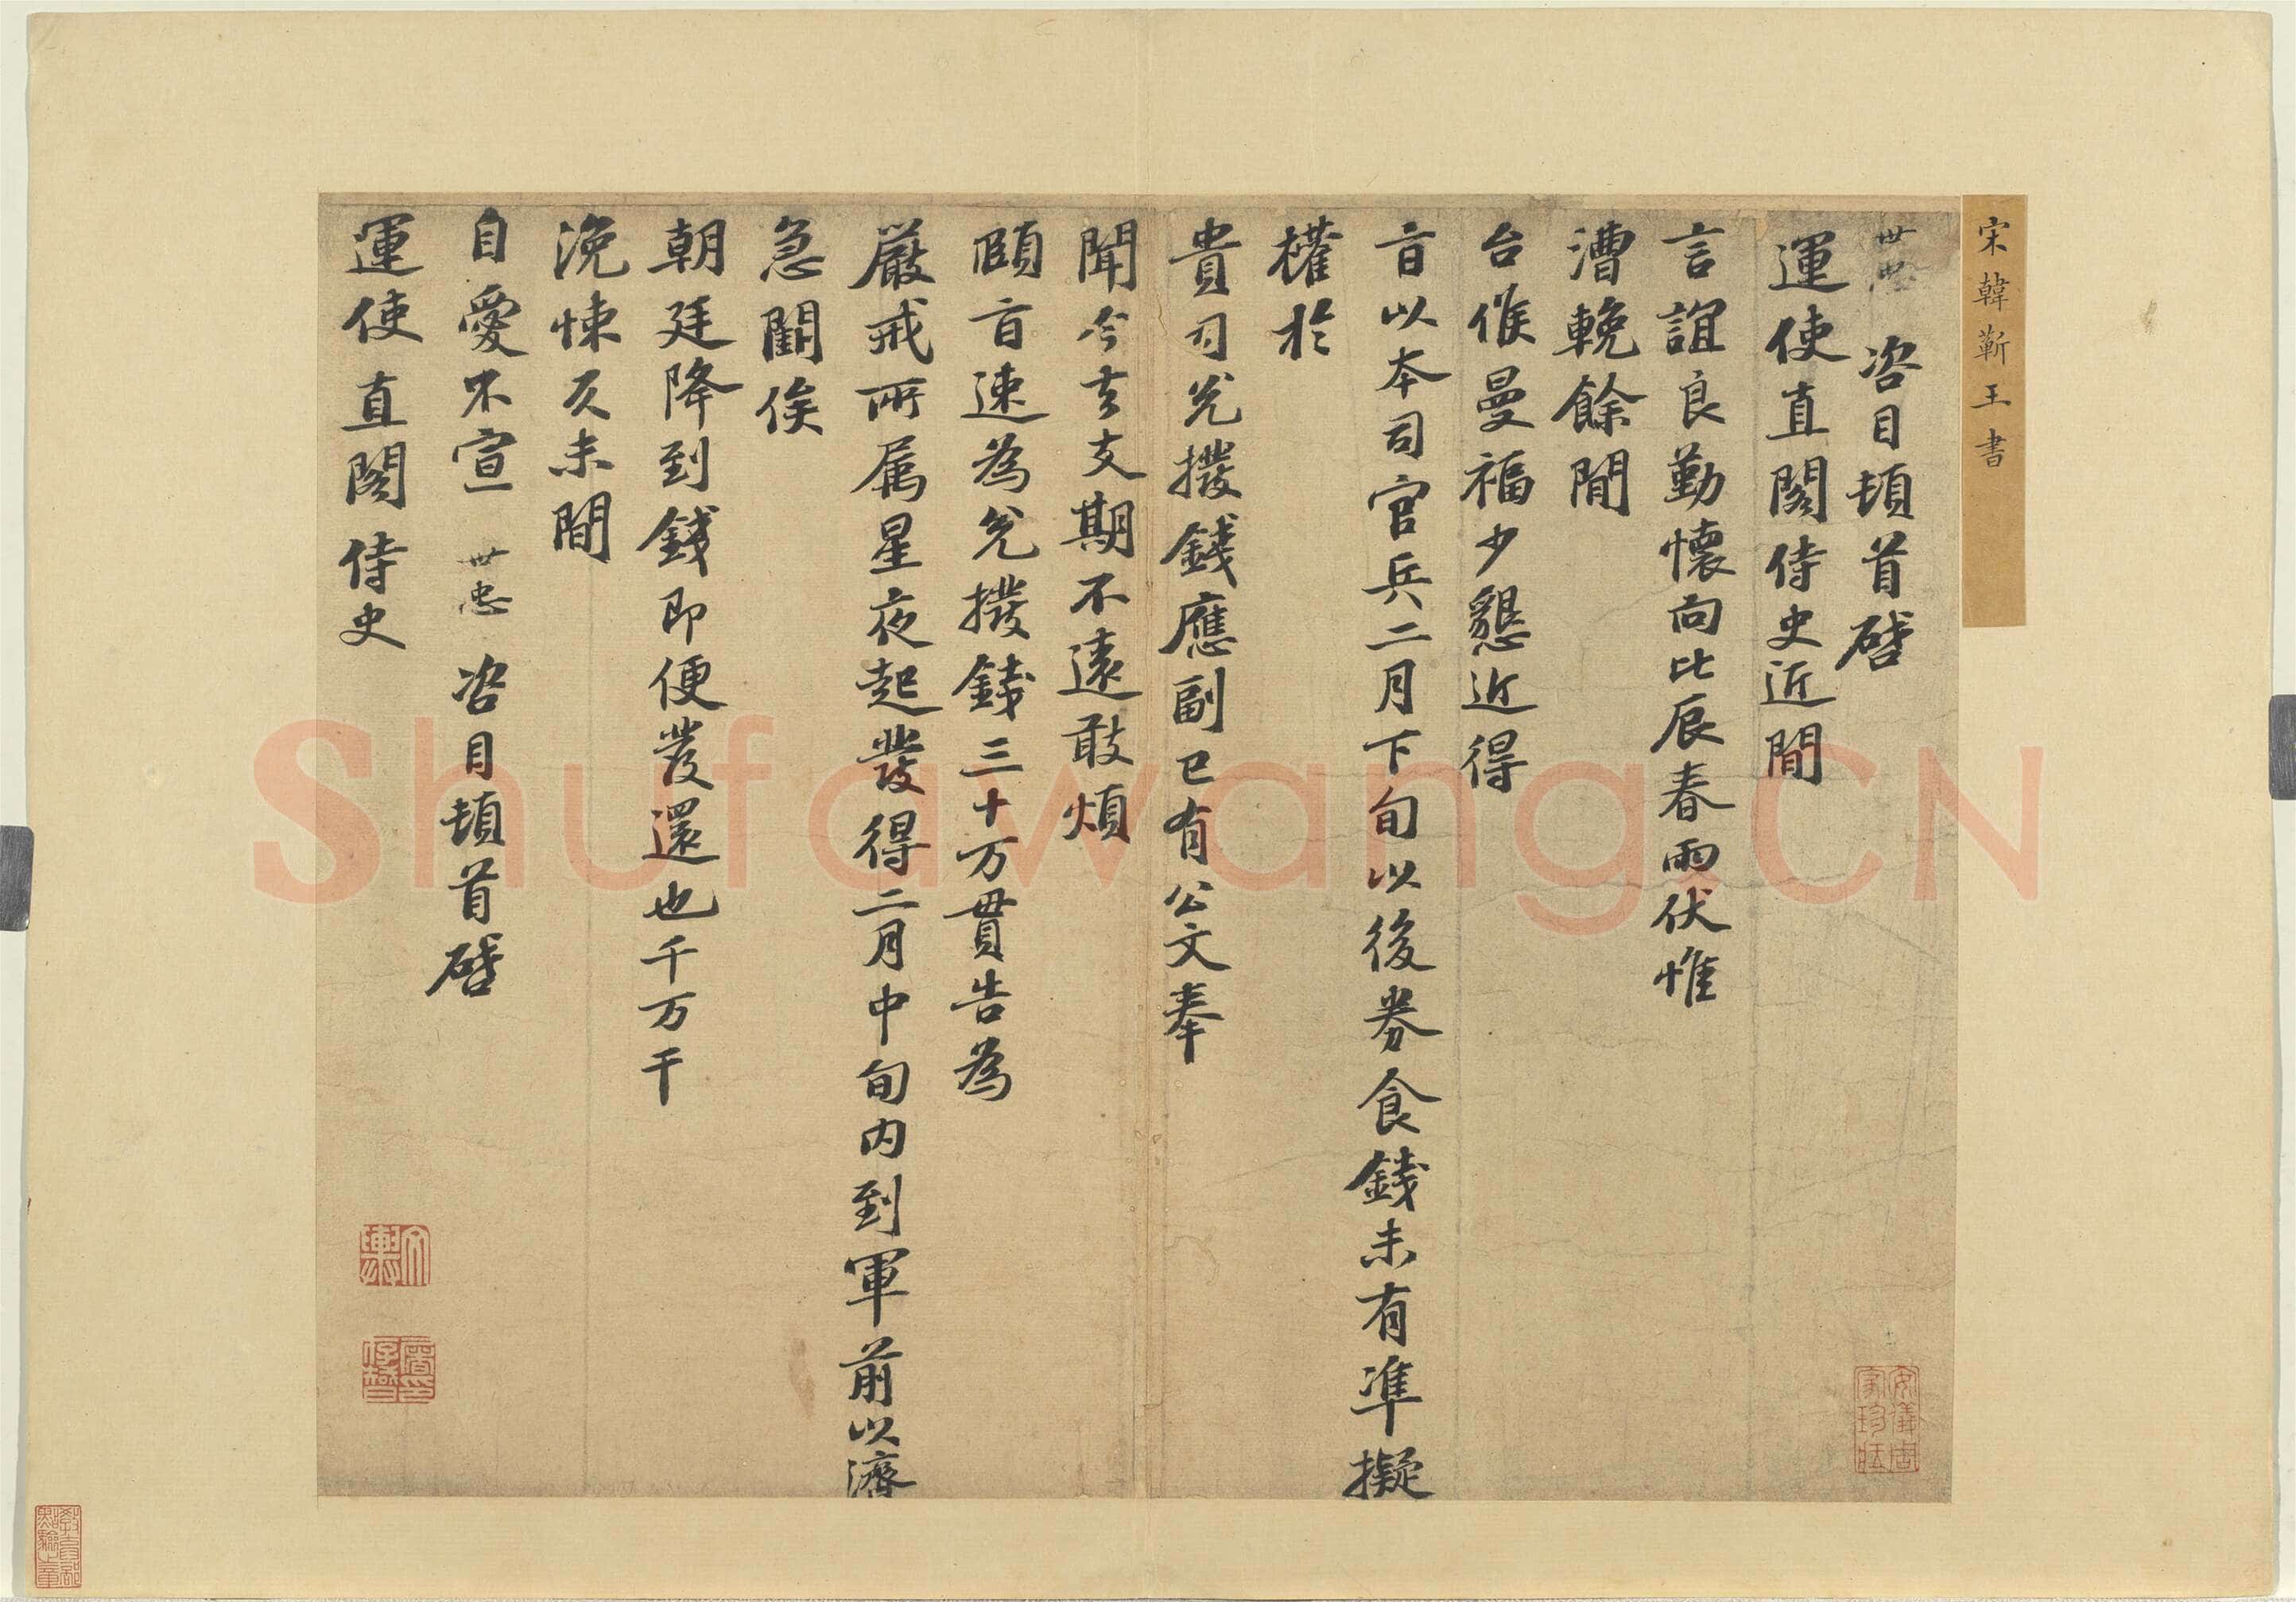 宋韓蘄王書
世忠 咨目頓首啓
運使直閣侍史近間
言誼良勤懷向比辰春雨伏惟
漕輓餘閒
台候曼福少懇近得
旨以本司官兵二月下旬以後券食錢未有準擬
權於
貴司兌撥錢應副已有公文奉
聞今去支期不遠敢煩
頤旨速為兌撥錢三十万貫告為
嚴戒所属星夜起發得二月中旬内到軍前以濟
急闕俟
朝廷降到錢即便發還也千万千
浼悚久未間
自愛不宣 世忠 咨目頓首啓
運使直閣侍史
安儀周家珍藏
教育部點驗之章
Shufawang.CN